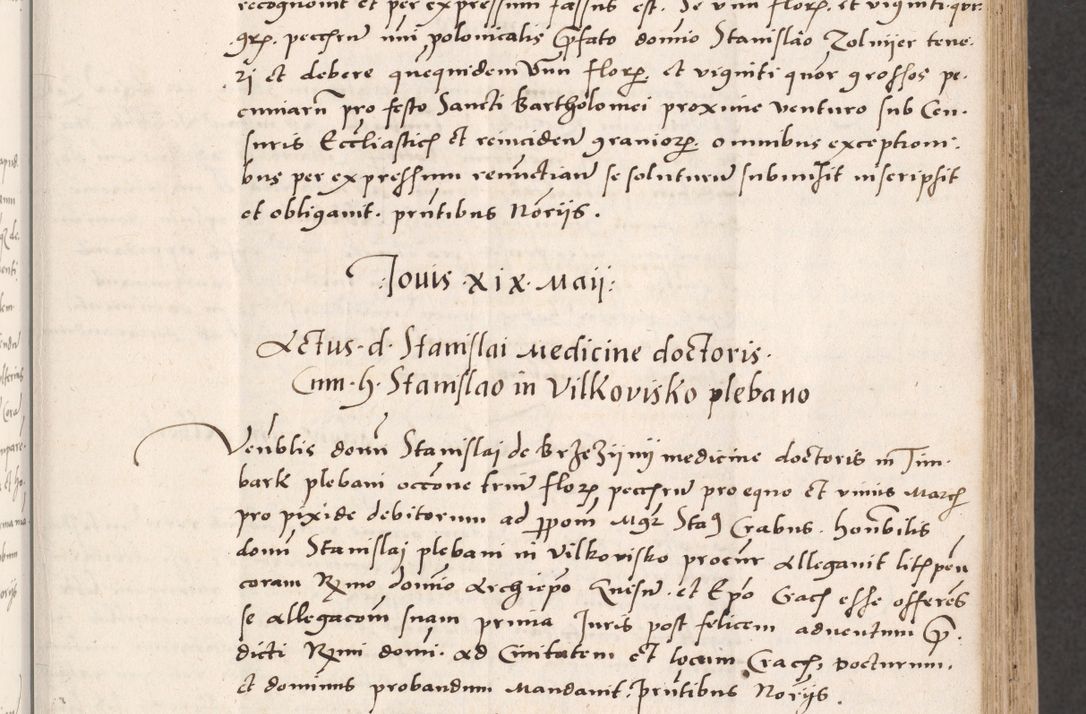 recognovit et per expressum fassus est. Se unu florꝫ. et viginti qůr
grꝫ. pecchru nūi polonicalis p̄fato domio Stanislao Zolnijer tene-
ri et debere quequidem Vnū florꝫ. et viginti quor grossos pe-
cuniarū pro festo Sancti Bartholomei proxime venturo sub Cen-
suris Eccliasticꝭ et reinciden graniorꝫ. omnibus exceptioni-
bus per expressum renūctian se soluturū submisit inscripsit
et obligauit. prn̄tibus Nor̄ijs.
Jouis ·xix· Maij:
Actus · d · Stanislai Medicine doctoris·
Cum · h · Stanislao in Vilkovisko plebano
Ven̄blis domi Stanislaj de BrzeZijnij medicine doctoris in Tim-
bark plebani occōne triu florꝫ pecchru pro equo et vnius March
pro pixide debitorum ad p̱pom Mgr̄ Staꝰ Crabus. honr̄bilis
domi Stanislaj plebani in Vilkovisko procūr Allegauit litꝭ pen
coram Rꝫmo domio Archiep̄o Gnesn̄. et Ep̄o Cracꝭ esse offerēs
se allegacom suam prima Juris post felicem aduentum p̄-
dicti Rꝫmi domi. ad Ciuitatem et locum Cracꝭ, Docturum.
et dominus probandum Mandauit. Prn̄tibus Nor̄ijs.